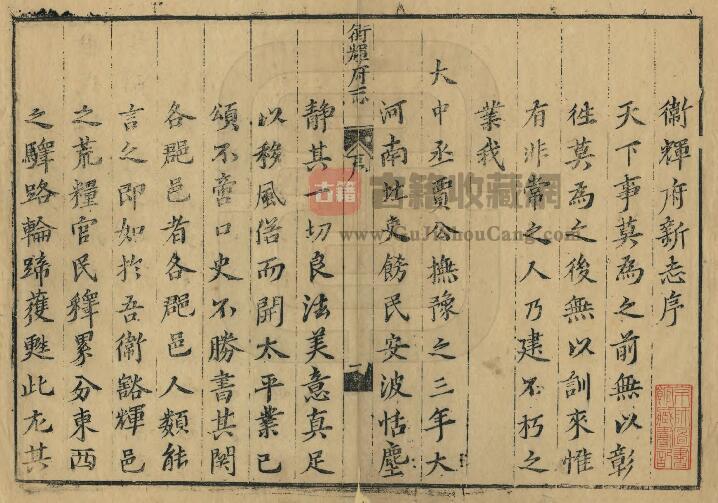 衛輝府新志序
天下事莫為之前無以彰
徃莫為之後無以訓來惟
有非常之人乃建不朽之
業我
大中丞賈公撫豫之三年大
河南北吏飭民安波恬塵
衛輝府志
一
靜其一切良法美意真足
以移風俗而開太平業已
頌不啻口史不勝書其関
各郡邑者各郡邑人類能
言之即如於吾衛豁輝邑
之荒糧官民釋累分東西
之驛路輪蹄獲甦此尤其
古籍
古籍收藏網
www.GuJiShouCang.com